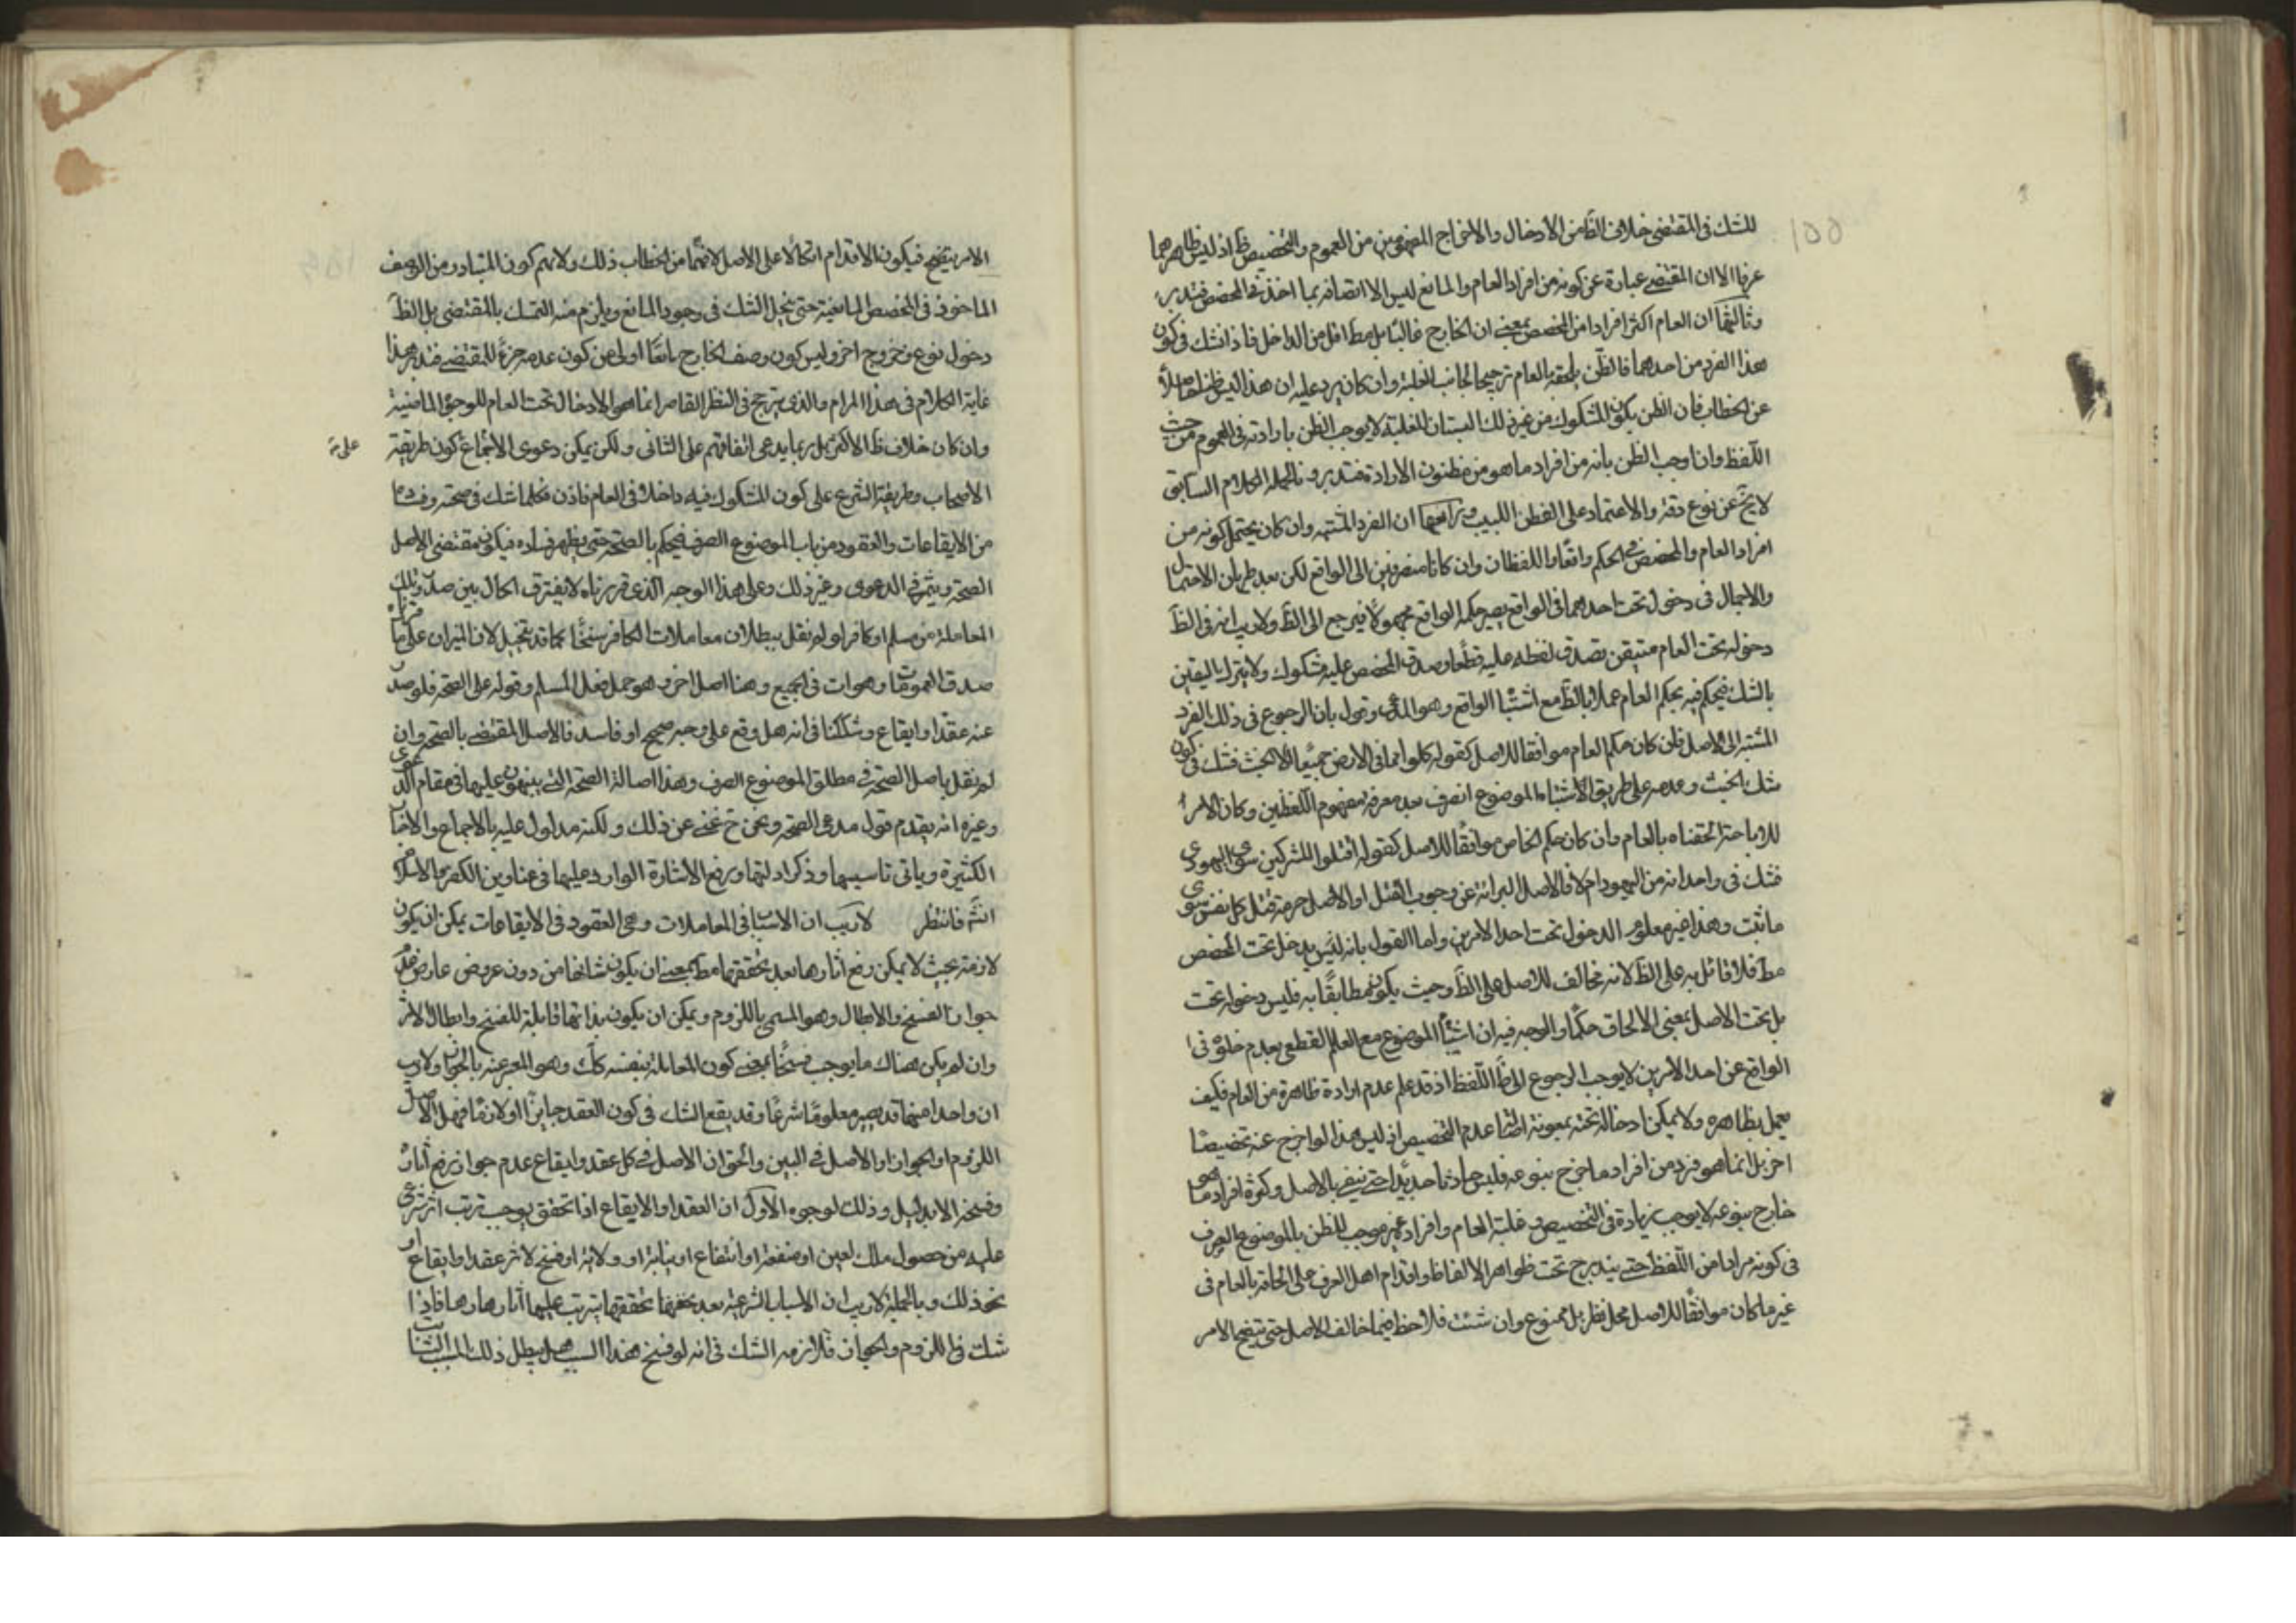 للشك في المقتضي خلاف الظ من الادخال والاخراج المفهومين من العموم والتخصيص ظ اذ ليس ظاهرهما
عرفا الا ان المقتضي عبارة عن كونه من افراد العام والمانع ليس الا اتصافه بما اخذ في المخصص فتدبر
وثالثها ان العام اكثر افرادا من المخصص بمعنى ان الخارج غالبا بل مط اقل من الداخل فاذا شك في كون
هذا الفرد من احدهما فالظن يلحقه بالعام ترجيحا لجانب الغلبة وان كان يرد عليه ان هذا ليس ظنا حاصلا
عن الخطاب فان الظن بكون المشكوك من غير ذلك البستان للغلبة لا يوجب الظن بارادته في العموم من حيث
اللفظ وان اوجب الظن بانه من افراد ما هو مظنون الارادة فتدبر وبالجملة الكلام السابق
لا يخ عن نوع دقة والاعتماد على الفطن اللبيب ورابعها ان الفرد المشتبه وان كان يحتمل كونه من
افراد العام والمخصص في الحكم واقعا واللفظان وان كانا منصرفين الى الواقع لكن بعد طريان الاحتمال
والاجمال في دخول تحت احدهما في الواقع يصير حكمه الواقع مجهولا فيرجع الى الظ ولا ريب انه في الظ
دخوله تحت العام متيقن بصدق لفظه عليه قطعا وصدق المخصص عليه مشكوك ولا يترك اليقين
بالشك فيحكم فيه بحكم العام عملا بالظ مع اشتباه الواقع وهو المدعى وقول بان الرجوع في ذلك الفرد
المشتبه الى الاصل فان كان حكم العام موافقا للاصل كقوله كلوا مما في الارض جميعا الا الخبث فشك في كون
شئ الخبث وعدمه على طريق الاشتباه الموضوع الصرف بعد معرفة مفهوم اللفظين وكان الامر
للاباحة الحقناه بالعام وان كان حكم الخاص موافقا للاصل كقوله اقتلوا المشركين سوى اليهودي
فشك في واحد انه من اليهود ام لا فالاصل البرائة عن وجوب القتل او الاصل حرمة قتل كل نفس سوى
ما ثبت وهذا غير معلوم الدخول تحت احد الامرين واما القول بانه ليس يدخل تحت المخصص
مط فلا قائل به على الظ لانه مخالف للاصل على الظ وحيث يكون مطابقا به فليس دخوله تحت
بل تحت الاصل بمعنى الالحاق حكما والوجه فيه ان اشتباه الموضوع مع العلم القطعي بعدم خلوه في
الواقع عن احد الامرين لا يوجب الرجوع الى ظ اللفظ اذ قد علم عدم ارادة ظاهره من العام فكيف
يعمل بظاهره ولا يمكن ادخاله تحته بمعونة اصالة عدم التخصيص اذ ليس هذا لو اخرج عنه تخصيصا
اخر بل انما هو فرد من افراد ما خرج بنوعه فليس حادثا جديدا حتى ينفى بالاصل وكثرة افراد ما هو
خارج بنوعه لا يوجب زيادة في التخصيص وغلبة العام وافراده غير موجب للظن بالموضوع الصرف
في كونه مرادا من اللفظ حتى يندرج تحت ظواهر الالفاظ واقدام اهل العرف على الحاقه بالعام في
غير ما كان موافقا للاصل محل نظر بل ممنوع وان شئت فلاحظ فيما خالف الاصل حتى يتضح الامر
الامر يتضح فيكون الاقدام اتكالا على الاصل لا فهما من الخطاب ذلك ولا نم كون المتبادر من الوصف
الماخوذ في المخصص المانعية حتى يجئ الشك في وجود المانع ويلزم منه التمسك بالمقتضي بل الظ
دخول نوع وخروج اخر وليس كون وصف الخارج مانعا اولى من كون عدمه جزء للمقتضي فتدبر هذا
غاية الكلام في هذا المرام والذي يترجح في النظر القاصر انما هو الادخال تحت العام للوجوه الماضية
وان كان خلاف ظ الاكثر بل ربما يدعى اتفاقهم على الثاني ولكن يمكن دعوى الاجماع كون طريقة
على
الاصحاب وطريقة الشرع على كون المشكوك فيه داخلا في العام فاذن فكلما شك في صحته وفساده
من الايقاعات والعقود من باب الموضوع الصرف فيحكم بالصحة حتى يظهر فساده فيكون مقتضى الاصل
الصحة ويثمر في الدعوى وغير ذلك وعلى هذا الوجه الذي قررناه لا يفترق الحال بين صدور تلك
المعاملة من مسلم او كافر او لم نقل ببطلان معاملات الكافر سنخا كما قد يتخيل لان الميزان على ما قررناه
صدق العمومات وهو ات في الجميع وهنا اصل اخر وهو حمل فعل المسلم وقوله على الصحة فلو صدر
عنه عقد او ايقاع وشككنا في انه هل وقع على وجه صحيح او فاسد فالاصل المقتضي بالصحة وان
لم نقل باصل الصحة في مطلق الموضوع الصرف وهذا اصالة الصحة التي ينبهون عليها في مقام الدعوى
وغيره انه يقدم قول مدعي الصحة ونحن ح غنى عن ذلك ولكنه مدلول عليه بالاجماع والاخبار
الكثيرة وياتي تاسيسها وذكر ادلتها ورفع الاشارة الوارد عليها في عناوين الكفر والاسلام
انش فانتظر لا ريب ان الاسباب في المعاملات وهي العقود في الايقاعات يمكن ان يكون
لازمة بحيث لا يمكن رفع اثارها بعد تحققها مط بمعنى ان يكون شانها من دون عروض عارض عدم
جواز الفسخ والابطال وهو المسمى باللزوم ويمكن ان يكون بذاتها قابلة للفسخ وابطال الاثر
وان لم يكن هناك ما يوجب فسخا بمعنى كون المعاملة بنفسه كك وهو المعبر عنه بالجواز ولا ريب
ان واحدا منهما قد يصير معلوما شرعا وقد يقع الشك في كون العقد جايزا او لازما فهل الاصل
اللزوم او الجواز او الاصل في البين والحق ان الاصل في كل عقد وايقاع عدم جواز رفع اثاره
وفسخه الا بدليل وذلك لوجوه الاول ان العقد او الايقاع اذا تحقق يوجب ترتب اثر شرعي
عليه من حصول ملك لعين او منفعة او انتفاع او نيابة او ولاية او فسخ لاثر عقد او ايقاع او
نحو ذلك وبالجملة لا ريب ان الاسباب الشرعية بعد تحققها يترتب عليها اثارها وهنا فاذا
شك في اللزوم والجواز فلازمه الشك في انه لو فسخ هذا السبب هل يبطل ذلك المسبب الثابت